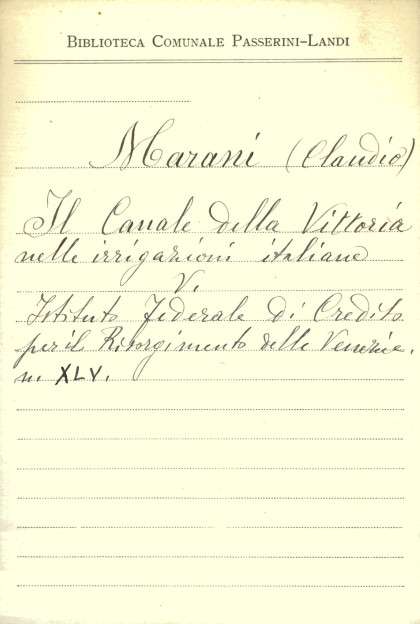 BIBLIOTECA COMUNALE PASSERINI-LANDI
Marani (Claudio)
Il Canale della Vittoria
nelle irrigazioni italiane
V.
Istituto Federale di Credito
per il Risorgimento delle Venezie.
n. XLV.